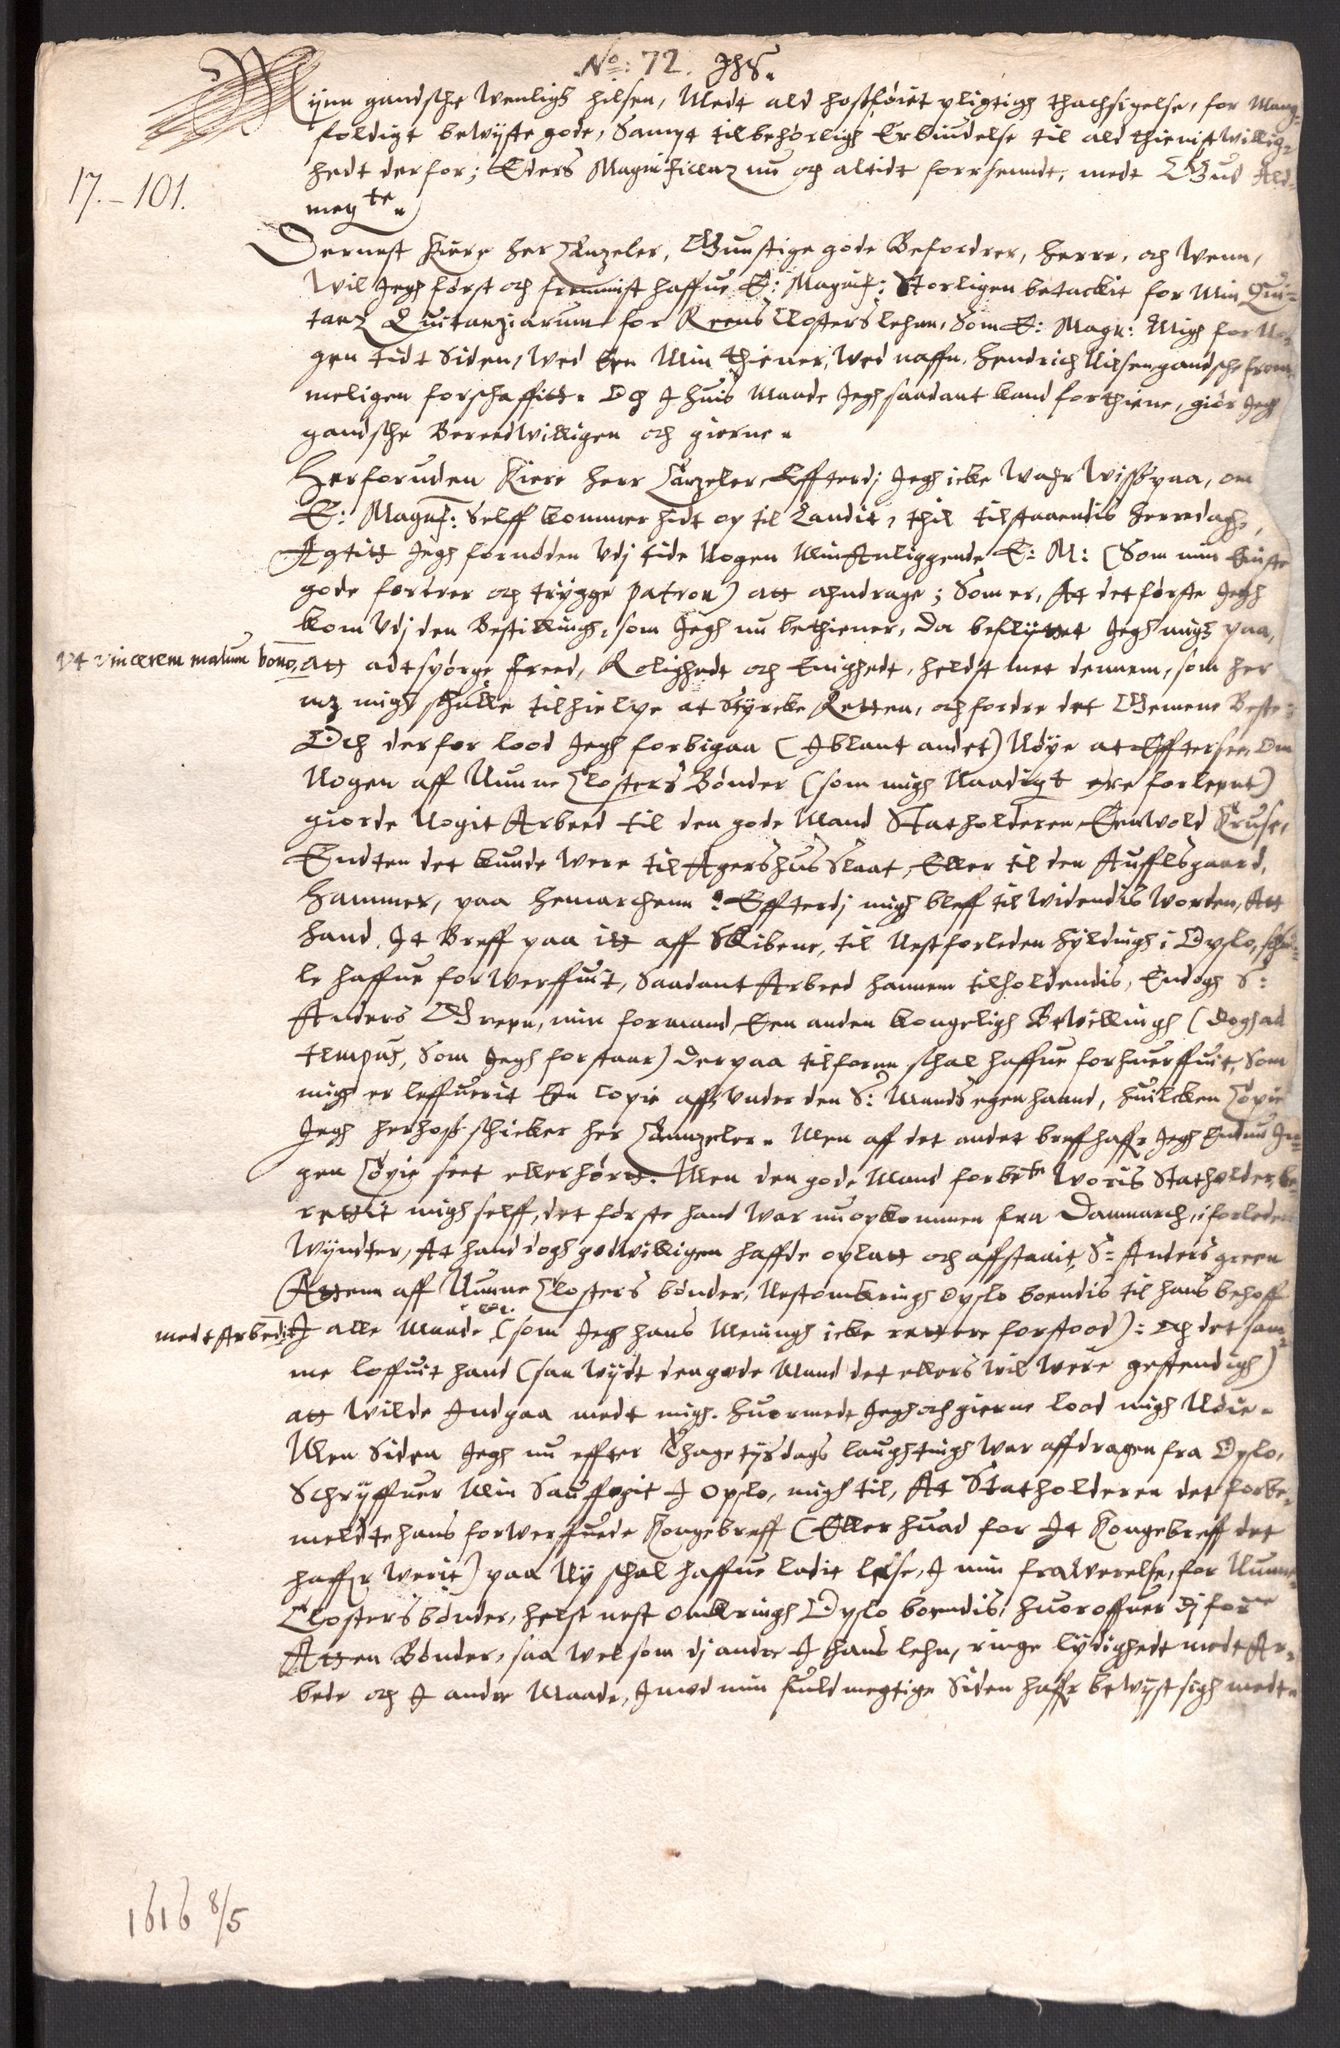 No: 72. JhS.
Mÿnn gandsche Wenligh hilsen, Medt ald hossføiet pligtigh thachsigelse, for Mang-
foldigt bewÿste gode, Sampt tilbehørligh Erbiudelse til ald thienistwillig-
hedt derfor; Eders Magnificenz nu och altidt forsenndt, medt Gud Ald-
17.-101.
megte.
Dernest Kiere her Canzeler, Gunstige gode Befordrer, herre, och Wenn,
Wil Jegh først och fremmist haffue E: Magnif: Storligen betackit for Min Qui-
tanz Quitanziarum for Reens Closters lehnn, Som E: Magn: Migh for No-
gen tidt siden, Wed Een Min thiener, Wed naffn, Hendrich Nilsen gandsche from-
meligen forschaffitt. Och J huis Maade Jegh saadant kand forthiene, giør Jegh
gandsche Bereedwilligen och gierne.
Herforuden Kiere Herr Canzeler, Effterdj Jegh icke Wahr Wiss paa, om
E: Magnif: Selff kommer hidt op til Landit, thil tilstaaendis herredagh,
Agtitt Jegh fornøden Udj tide Nogen Min Anliggende E: M: (Som min
gode fortrer och trÿgge patron) att ahndrage; Som er, At det første Jegh
kom Udj den Bestillingh, som Jegh nu bethiener, Da befliittet Jegh migh paa,
Vt vincerem malum bono, att adtspørge freed, Rolighedt och Enighedt, heldst met dennem, som her
mz migh schulle tilhielpe at Stÿrcke Retten, och fordre det Gemene Beste;
Och derfor lood Jegh forbigaa (Jblant andet) Nøÿe at Efftersee, Om
Nogen aff Nunne Closters Bønder (som migh Naadigt ere forlent)
giorde Nogit Arbeed til den gode Mand Statholderen Enwold Kruse,
Endten det kunde Were til Agershus Slaat, Eller til den Aufflsgaard,
Hammer, paa Hemarchenn: Effterdj migh bleff til Widendis Worden, Att
hand Jt Breff paa itt aff Skibene, til Nestforleden Hÿldingh i Opslo, schul-
le haffue forwerffuit, Saadant Arbeed hannem tilholdendis, Endogh S:
Anders Green, min formand, Een anden kongeligh Bewillingh (Dogh ad
tempus, Som Jegh forstaar) Derpaa tilforne schal haffue forhuerffuit, Som
migh er leffuerit Een Copie aff, Under den S: Mands egen haand, Huilcken Copie
Jegh herhoss schicker her Canzeler. Men aff det andet breff haffr Jegh Endnu In-
gen Copie seet eller hørtt. Men den gode Mand forbete Woris Statholder, be-
rettit migh selff, det første hand War nu opkommen fra Danmarch, i forleden
Wÿndter, At hand dogh godwilligen haffde oplatt och affstaait, S: Anders green
Attenn aff Nunne Closters bønder, Nestomkringh Opslo boendis til hans behoff
medt Arbedit J alle Maade (som Jegh hans Meningh icke rettere forstood): Och det sam-
me loffuit hand (saa Wÿdt den gode Mand det ellers wil Were gestendigh)
att Wilde Jndgaa medt migh. Huormedt Jegh och gierne lood migh Nøie.
Men Siden Jegh nu effter Thagetÿsdags laughtingh War affdragen fra Opslo,
Schrÿffuer Min Sauffogit J Opslo, migh til, At Statholderen det forbe-
meldte hans forwerffuede Kongebreff (Eller huad for Jt Kongebreff det
haffr Werit) paa Nÿ schal haffue ladit lese, J min frawerelse, for Nunne-
Closters bønder, helst nest omkringh Opslo boendis, huoroffuer dj forne
Atten Bønder, saa Wel som dj andre J hans lehn, ringe lÿdighedt medt Ar-
bede och J andre Maade, Jmod min fuldmegtige Siden haffr bewÿst sigh medt.
1616 8/5